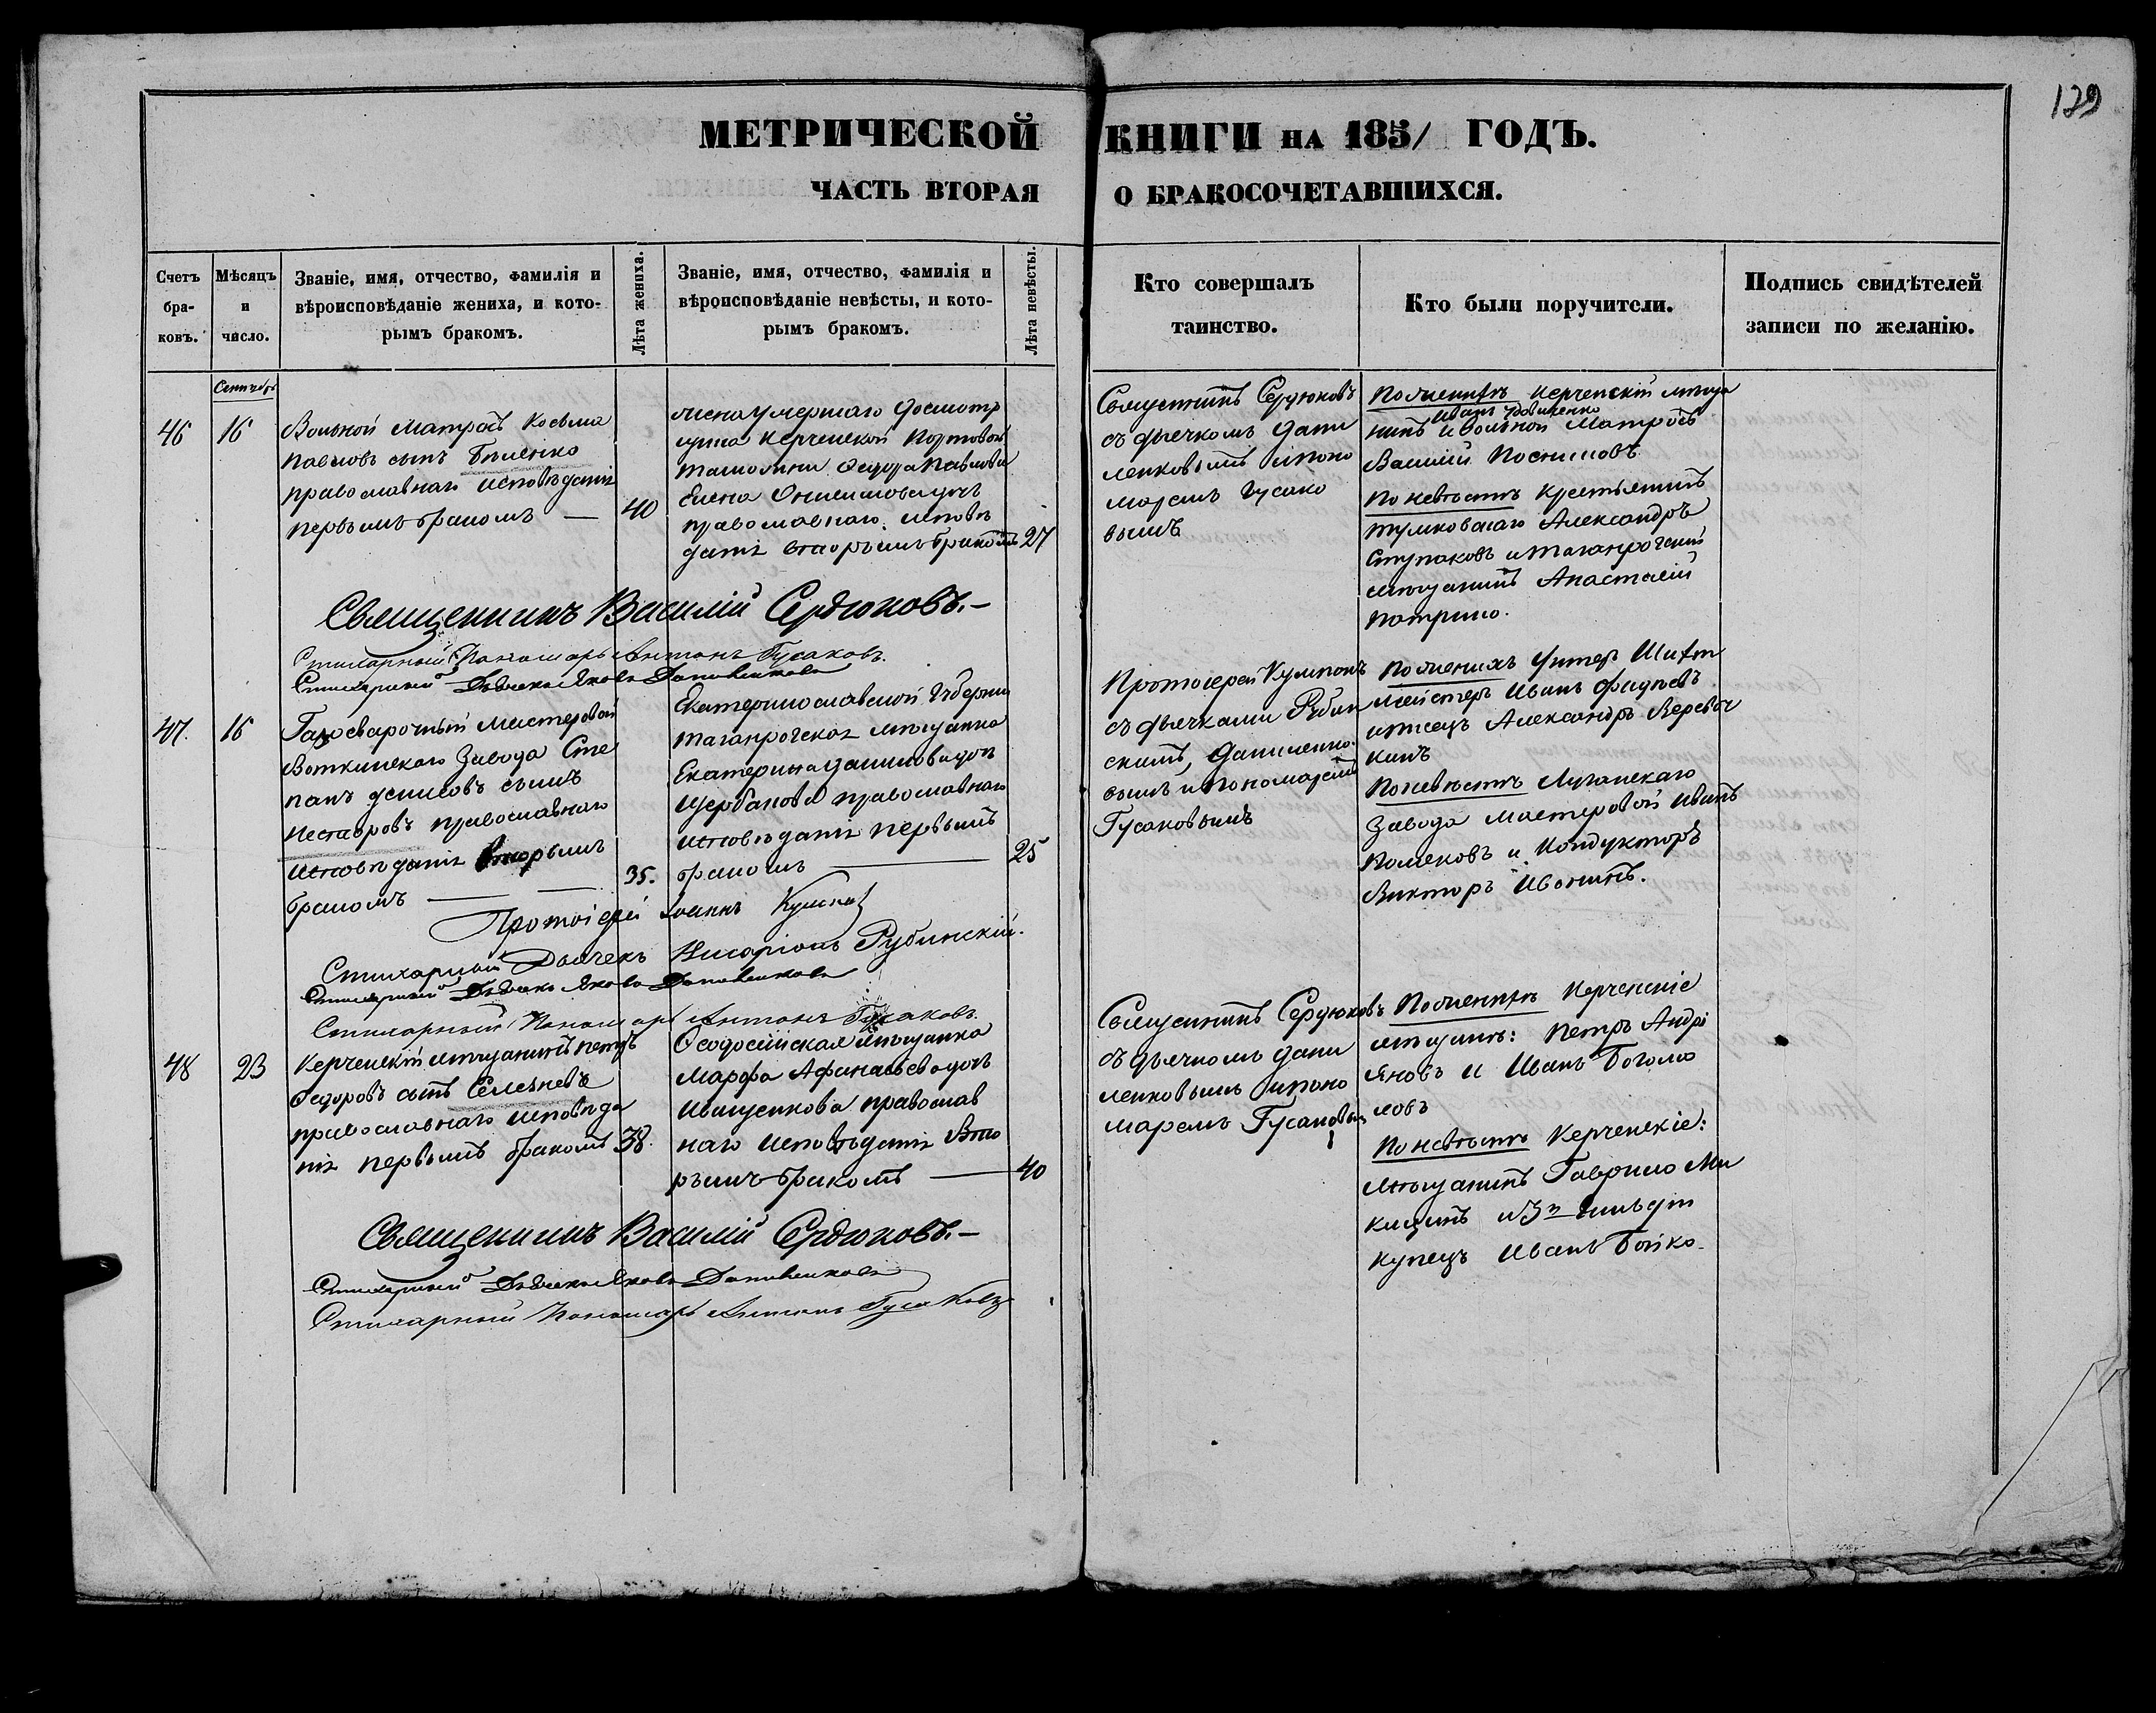 129
МЕТРИЧЕСКОЙ КНИГИ НА 1851 ГОДЪ.
ЧАСТЬ ВТОРАЯ О БРАКОСОЧЕТАВШИХСЯ.
Счетъ бра-ковъ.
Мѣсяцъ и число.
Званіе, имя, отчество, фамилія и
вѣроисповѣданіе жениха, и кото-
рымъ бракомъ.
Лѣта жениха.
Званіе, имя, отчество, фамилія и
вѣроисповѣданіе невѣсты, и кото-
рымъ бракомъ.
Лѣта невѣсты.
Кто совершалъ
таинство.
Кто были поручители.
Подпись свидѣтелей
записи по желанію.
Сентябрь
46
16
Вольной Матросъ Косьма
Павловъ сынъ Биленко
православнаго исповѣданія
первымъ бракомъ —
40
жена умершаго Досмотр
щика Керченской Портовой
таможни Федора Павлова
Елена дочь
православнаго исповѣ
данія вторымъ бракомъ
27
Священникъ Сердюковъ
съ дьячкомъ Дани
ленковымъ и поно
маремъ Гусако
вымъ
По женихѣ Керченскій мѣща
Иванъ
нинъ и вольной Матросъ
Василій Постниковъ
По невѣстѣ крестьянинъ
Александръ
Ступаковъ и Таганрогскій
мѣщанинъ Анастасій
Священникъ Василій Сердюковъ.—
Стихарный Пономарь Антонъ Гусаковъ.
Стихарный Дьячекъ Яковъ Даниленковъ
47.
16
Газосварочный мастеровой
Воткинскаго Завода Сте
панъ Денисовъ сынъ
Несторовъ православнаго
исповѣданія вторымъ
бракомъ —
35.
Екатеринославской Губерніи
таганрогская мѣщанка
Екатерина Данилова дочь
Щербакова православнаго
исповѣданія первымъ
бракомъ —
25
Протоіерей Кумпанъ
съ дьячками Рубин
скимъ, Даниленко
вымъ и пономаремъ
Гусаковымъ
По женихѣ Унтеръ Шихт
мейстеръ Иванъ Фадѣевъ
и писецъ Александръ Веревоч
кинъ
По невѣстѣ Луганскаго
Завода мастеровой Иванъ
Поляковъ и Кондукторъ
Викторъ Ивонинъ.
Протоіерей Іоаннъ Кумпанъ
Стихарный Дьячекъ Иларіонъ Рубинскій.
Стихарный Дьячекъ Яковъ Даниленковъ
Стихарный Пономарь Антонъ Гусаковъ.
48
23
Керченскій мѣщанинъ Петръ
Федоровъ сынъ Селезневъ
православнаго исповѣда
нія первымъ бракомъ
38.
Феодосійская мѣщанка
Марфа Афанасьева дочь
Иващенкова православ
наго исповѣданія Вто
рымъ бракомъ —
40
Священникъ Сердюковъ
съ дьячкомъ Дани
ленковымъ и поно
маремъ Гусаковымъ
По женихѣ Керченскіе
мѣщане: Петръ Андрі
яновъ и Иванъ Богомо
ловъ
По невѣстѣ Керченскіе:
мѣщанинъ Гаврило Ми
кицинъ и 3й гильдіи
купецъ Иванъ Бойко.
Священникъ Василій Сердюковъ.—
Стихарный Дьячекъ Яковъ Даниленковъ
Стихарный Пономарь Антонъ Гусаковъ